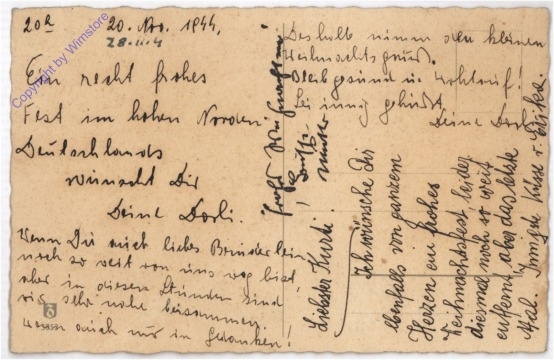 20R 20. Nov. 1944.
28.11.4
Ein recht frohes
Fest im hohen Norden
Deutschlands
wünscht Dir
Deine Dorli.
Wenn Du auch liebes Brüderlein
noch so weit von uns weg bist,
aber in diesen Stunden sind
wir sehr nahe beisammen.
wenn auch nur in Gedanken!
Deshalb nimm den kleinen
Weihnachtsgruß.
Bleib gesund u.
Sei innig geküßt
Deine Dorli.
Liebster Kurti!
Ich wünsche Dir
ebenfalls von ganzem
Herzen ein frohes
Weihnachtsfest leider
diesmal noch so weit
entfernt, aber das letzte
Mal. Innigste Küsse v. Erika.
Mutti
Copyright by Wimstore